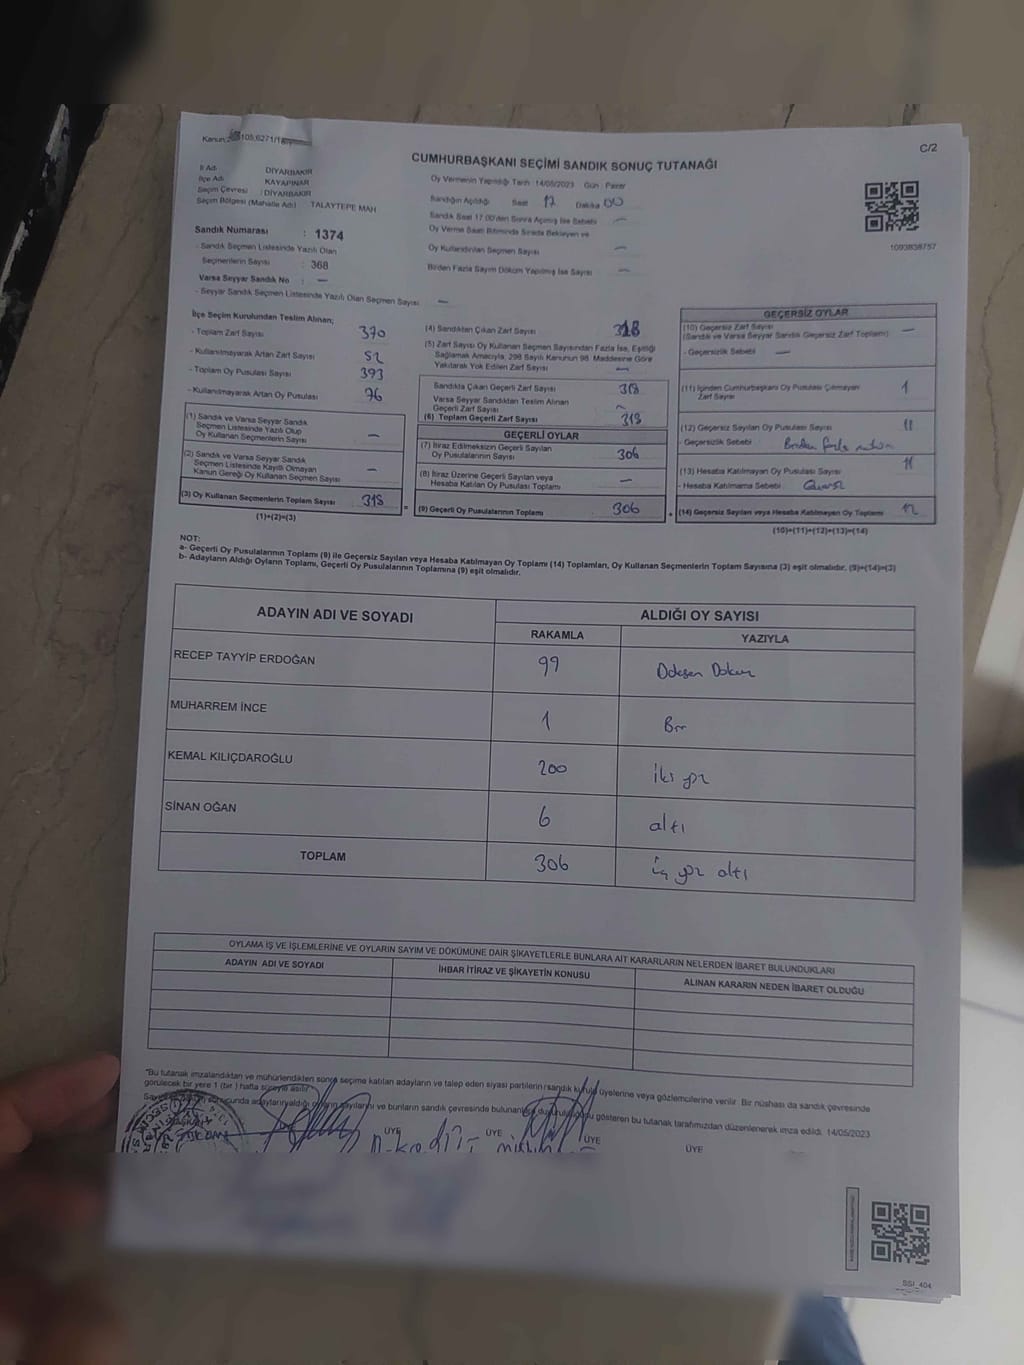 C/2
CUMHURBAŞKANI SEÇİMİ SANDIK SONUÇ TUTANAĞI
İl Adı : DİYARBAKIR
İlçe Adı : KAYAPINAR
Seçim Çevresi : DİYARBAKIR
Seçim Bölgesi (Mahalle Adı) TALAYTEPE MAH
Sandık Numarası : 1374
- Sandık Seçmen Listesinde Yazılı Olan
Seçmenlerin Sayısı : 368
Varsa Seyyar Sandık No : —
- Seyyar Sandık Seçmen Listesinde Yazılı Olan Seçmen Sayısı —
Oy Vermenin Yapıldığı Tarih : 14/05/2023 Gün : Pazar
Sandığın Açıldığı Saat 17 Dakika 00
Sandık Saat 17.00'den Sonra Açılmış İse Sebebi —
Oy Verme Saati Bitiminde Sırada Bekleyen ve
Oy Kullandırılan Seçmen Sayısı —
Birden Fazla Sayım Döküm Yapılmış İse Sayısı —
1093838757
İlçe Seçim Kurulundan Teslim Alınan;
- Toplam Zarf Sayısı 370
- Kullanılmayarak Artan Zarf Sayısı 52
- Toplam Oy Pusulası Sayısı 393
- Kullanılmayarak Artan Oy Pusulası 76
(1) Sandık ve Varsa Seyyar Sandık
Seçmen Listesinde Yazılı Olup
Oy Kullanan Seçmenlerin Sayısı —
(2) Sandık ve Varsa Seyyar Sandık
Seçmen Listesinde Kayıtlı Olmayan
Kanun Gereği Oy Kullanan Seçmen Sayısı —
(3) Oy Kullanan Seçmenlerin Toplam Sayısı 318
(1)+(2)=(3)
(4) Sandıktan Çıkan Zarf Sayısı 318
(5) Zarf Sayısı Oy Kullanan Seçmen Sayısından Fazla İse, Eşitliği
Sağlamak Amacıyla, 298 Sayılı Kanunun 98. Maddesine Göre
Yakılarak Yok Edilen Zarf Sayısı —
Sandıkta Çıkan Geçerli Zarf Sayısı 318
Varsa Seyyar Sandıktan Teslim Alınan
Geçerli Zarf Sayısı —
(6) Toplam Geçerli Zarf Sayısı 318
GEÇERLİ OYLAR
(7) İtiraz Edilmeksizin Geçerli Sayılan
Oy Pusulalarının Sayısı 306
(8) İtiraz Üzerine Geçerli Sayılan veya
Hesaba Katılan Oy Pusulası Toplamı —
(9) Geçerli Oy Pusulalarının Toplamı 306
GEÇERSİZ OYLAR
(10) Geçersiz Zarf Sayısı
(Sandık ve Varsa Seyyar Sandık Geçersiz Zarf Toplamı) —
- Geçersizlik Sebebi —
(11) İçinden Cumhurbaşkanı Oy Pusulası Çıkmayan
Zarf Sayısı 1
(12) Geçersiz Sayılan Oy Pusulası Sayısı 11
- Geçersizlik Sebebi Birden fazla
(13) Hesaba Katılmayan Oy Pusulası Sayısı
- Hesaba Katılmama Sebebi
(14) Geçersiz Sayılan veya Hesaba Katılmayan Oy Toplamı 12
(10)+(11)+(12)+(13)=(14)
NOT:
a- Geçerli Oy Pusulalarının Toplamı (9) ile Geçersiz Sayılan veya Hesaba Katılmayan Oy Toplamı (14) Toplamları, Oy Kullanan Seçmenlerin Toplam Sayısına (3) eşit olmalıdır. (9)+(14)=(3)
b- Adayların Aldığı Oyların Toplamı, Geçerli Oy Pusulalarının Toplamına (9) eşit olmalıdır.
ADAYIN ADI VE SOYADI ALDIĞI OY SAYISI
RAKAMLA YAZIYLA
RECEP TAYYİP ERDOĞAN 99 Doksan Dokuz
MUHARREM İNCE 1 Bir
KEMAL KILIÇDAROĞLU 200 iki yüz
SİNAN OĞAN 6 altı
TOPLAM 306 üç yüz altı
OYLAMA İŞ VE İŞLEMLERİNE VE OYLARIN SAYIM VE DÖKÜMÜNE DAİR ŞİKAYETLERLE BUNLARA AİT KARARLARIN NELERDEN İBARET BULUNDUKLARI
ADAYIN ADI VE SOYADI İHBAR İTİRAZ VE ŞİKAYETİN KONUSU ALINAN KARARIN NEDEN İBARET OLDUĞU
"Bu tutanak imzalandıktan ve mühürlendikten sonra seçime katılan adayların ve talep eden siyasi partilerin sandık kurulu üyelerine veya gözlemcilerine verilir. Bir nüshası da sandık çevresinde
görülecek bir yere 1 (bir) hafta süreyle asılır."
gösteren bu tutanak tarafımızdan düzenlenerek imza edildi. 14/05/2023
ÜYE ÜYE ÜYE ÜYE
SSI_404